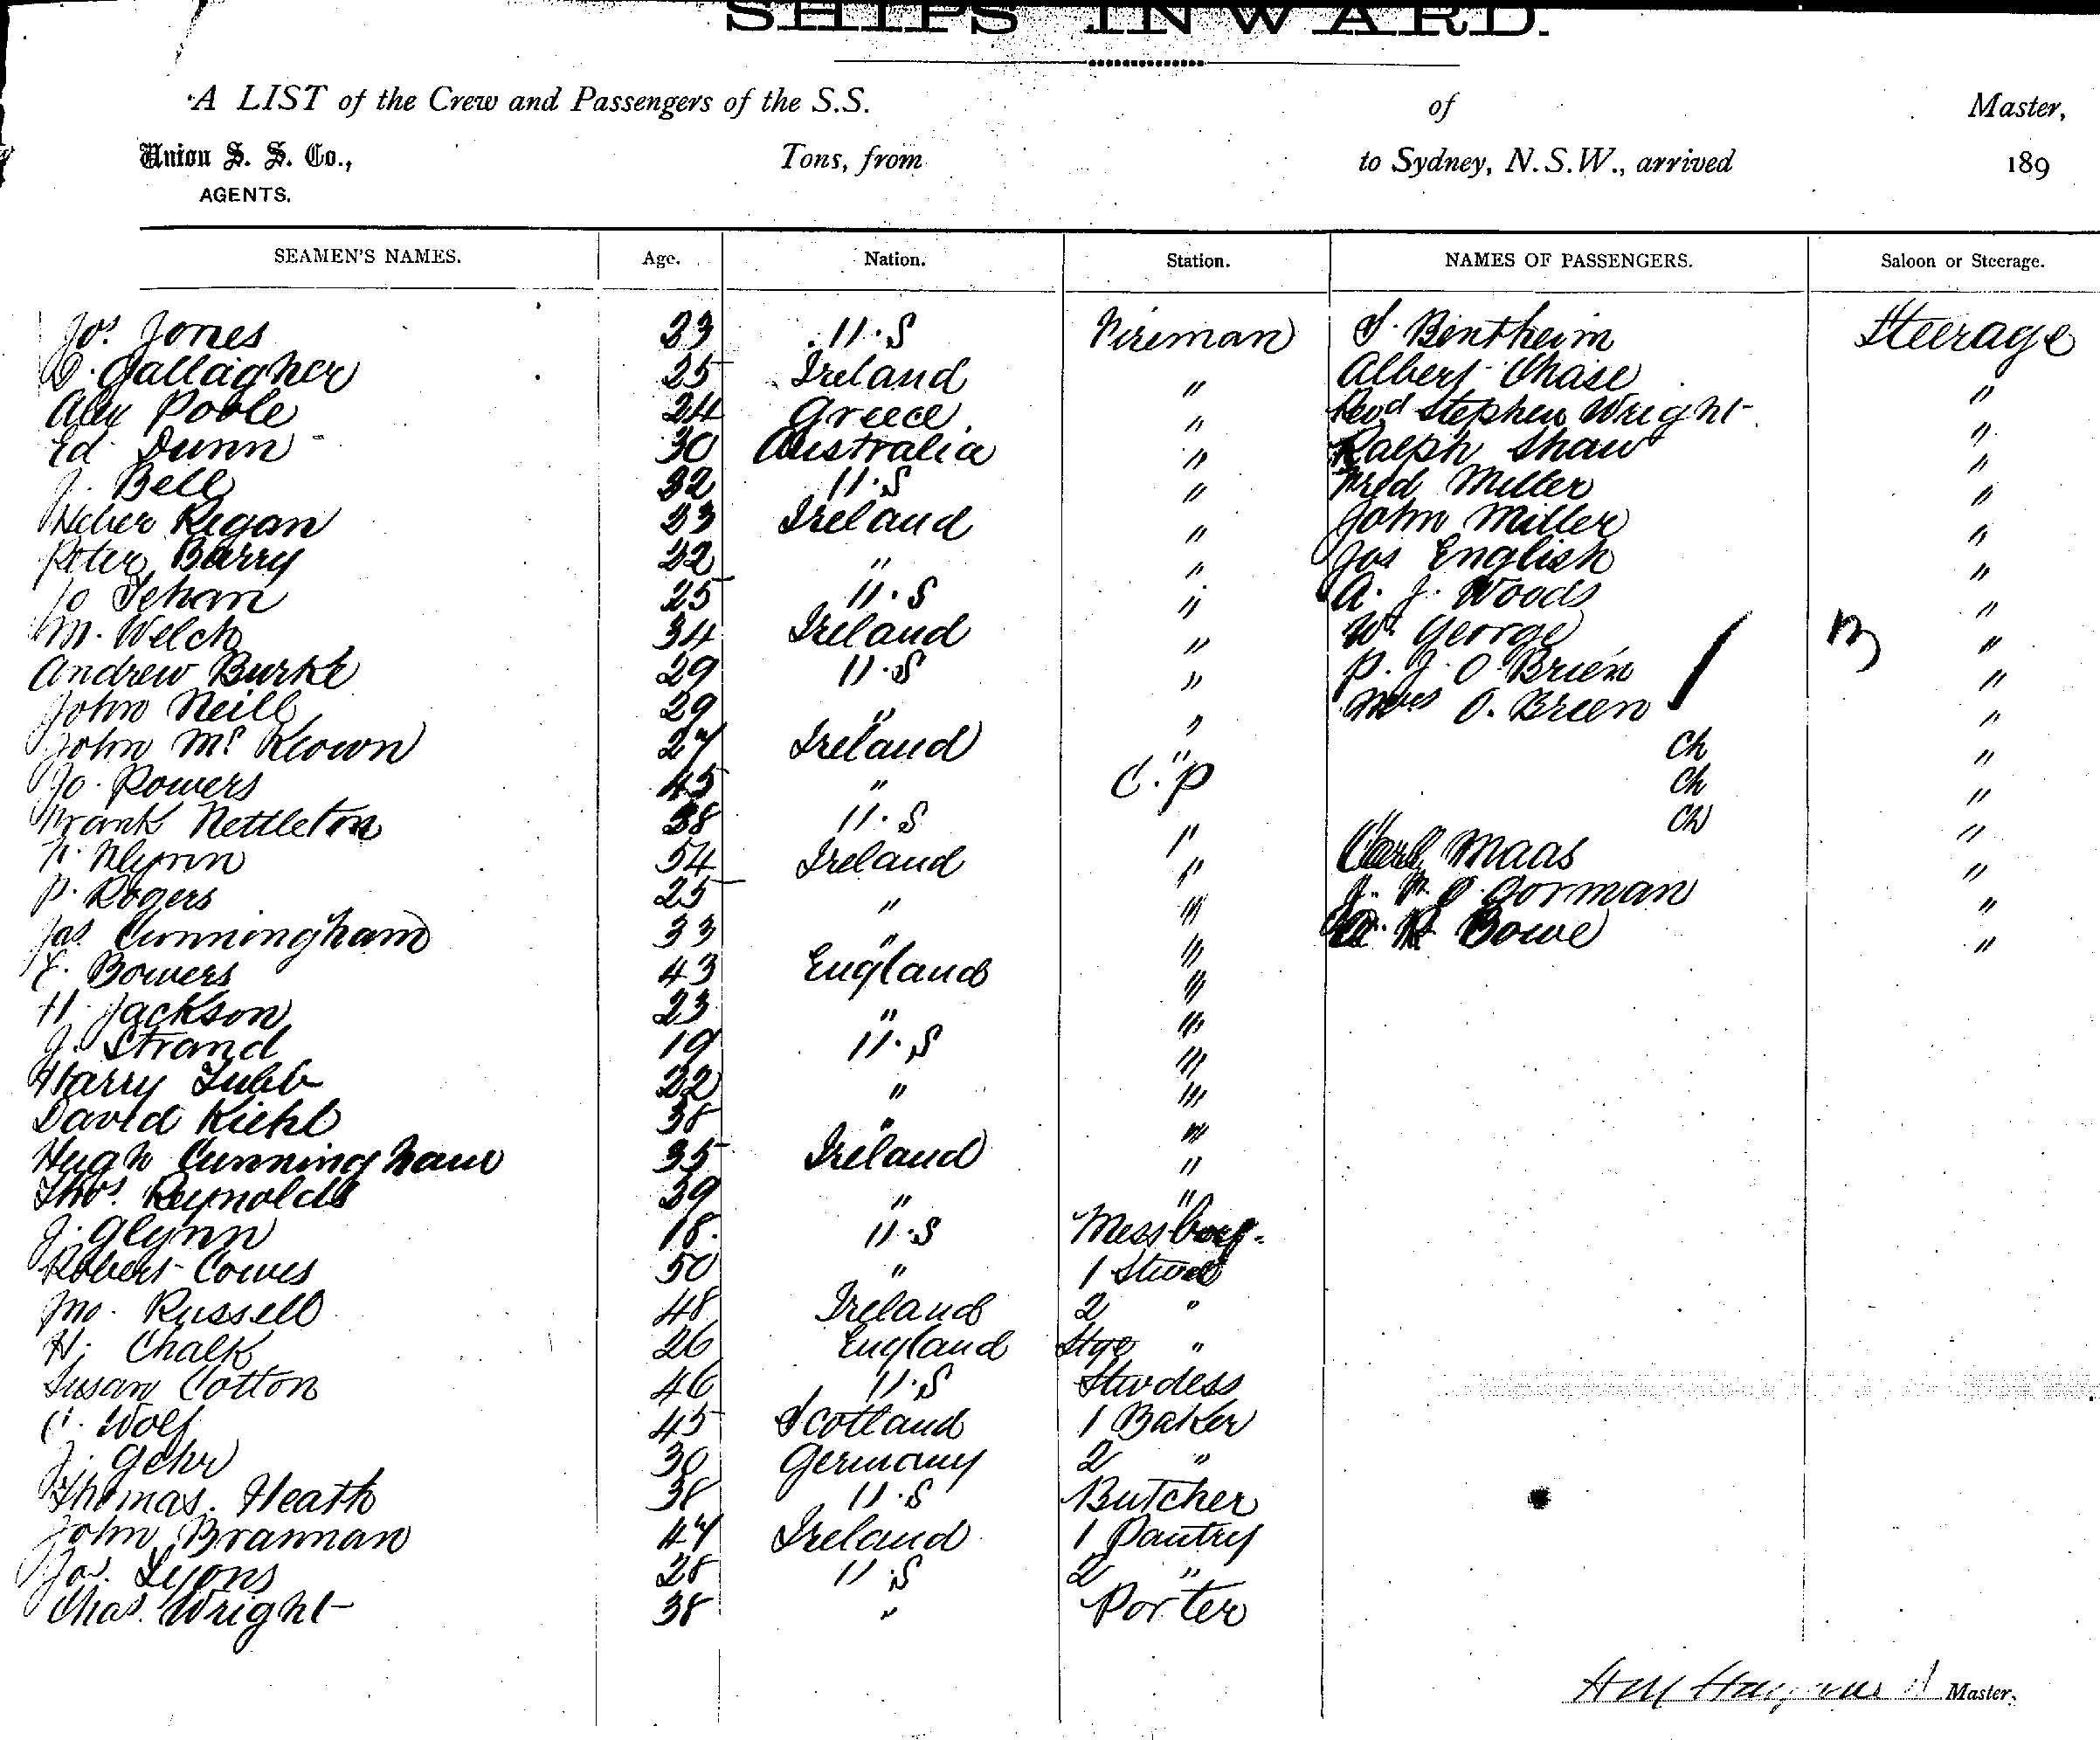 SHIPS INWARD.
A LIST of the Crew and Passengers of the S.S. of Master,
Union S. S. Co., Tons, from to Sydney, N.S.W., arrived 189
AGENTS.
SEAMEN'S NAMES. Age. Nation. Station. NAMES OF PASSENGERS. Saloon or Steerage.
Jos. Jones 33 U.S Fireman S. Bentheim Steerage
D. Gallagher 25 Ireland " Albert Chase "
Alex Poole 24 Greece " Revd Stephen Wright "
Ed Dunn 30 Australia " Ralph Shaw "
J. Bell 32 U.S " Fred Miller "
Heber Regan 33 Ireland " John Miller "
Peter Barry 32 " " Jos English "
Jo Tehan 25 U.S " A. J. Woods "
M. Welch 34 Ireland " Wm George "
Andrew Burke 29 U.S " P. J. O'Brien "
John Neill 29 " " Mrs O. Brien "
John Mc Keown 27 Ireland " Ch "
Jo. Powers 45 " C.P Ch "
Frank Nettleton 38 U.S " Ch "
Flynn 54 Ireland " Carl Maas "
P. Rogers 25 " " Gorman "
Jas Cunningham 33 " " Bowe "
Bowers 43 England "
H. Jackson 23 " "
J. Strand 19 U.S "
Harry Tubb 22 " "
David Kiehl 38 " "
Hugh Cunningham 35 Ireland "
Thos. Reynolds 39 " "
J. Glynn 18. U.S Messboy.
Robert Cowes 50 " 1 Stwd
Jno. Russell 48 Ireland 2 "
H. Chalk 26 England Stge "
Susan Cotton 46 U.S Stwdess
C. Wolf 45 Scotland 1 Baker
J. Gehr 30 Germany 2 "
Thomas. Heath 38 U.S Butcher
John Brannan 47 Ireland 1 Pantry
Jos. Lyons 28 U.S 2 "
Chas. Wright 38 " Porter
Master.